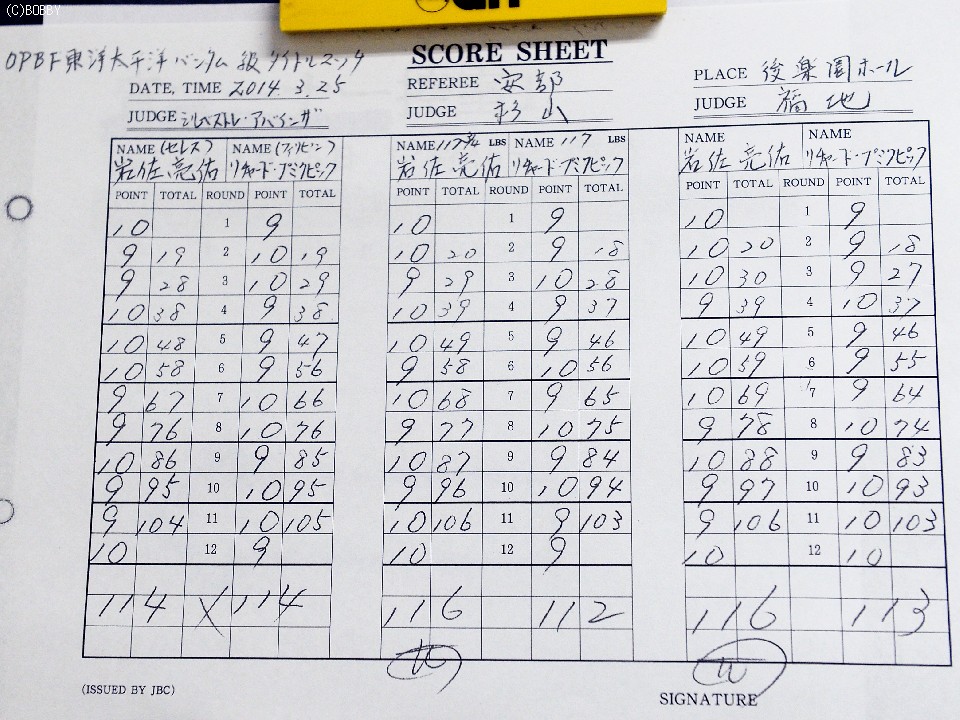 (C)BOBBY
OPBF東洋太平洋バンタム級タイトルマッチ
SCORE SHEET
DATE, TIME 2014 3. 25
REFEREE 安部
PLACE 後楽園ホール
JUDGE シルベストレ・アバインザ
JUDGE 杉山
JUDGE 福地
NAME (セレス) NAME (フィリピン) NAME 117¾ LBS NAME 117 LBS NAME NAME
岩佐亮佑 リチャード・プミクピック 岩佐亮佑 リチャード・プミクピック 岩佐亮佑 リチャード・プミクピック
POINT TOTAL ROUND POINT TOTAL POINT TOTAL ROUND POINT TOTAL POINT TOTAL ROUND POINT TOTAL
10 1 9 10 1 9 10 1 9
9 19 2 10 19 10 20 2 9 18 10 20 2 9 18
9 28 3 10 29 9 29 3 10 28 10 30 3 9 27
10 38 4 9 38 10 39 4 9 37 9 39 4 10 37
10 48 5 9 47 10 49 5 9 46 10 49 5 9 46
10 58 6 9 56 9 58 6 10 56 10 59 6 9 55
9 67 7 10 66 10 68 7 9 65 10 69 7 9 64
9 76 8 10 76 9 77 8 10 75 9 78 8 10 74
10 86 9 9 85 10 87 9 9 84 10 88 9 9 83
9 95 10 10 95 9 96 10 10 94 9 97 10 10 93
9 104 11 10 105 10 106 11 9 103 9 106 11 10 103
10 12 9 10 12 9 10 12 10
114 X 114 116 112 116 113
(ISSUED BY JBC)
SIGNATURE